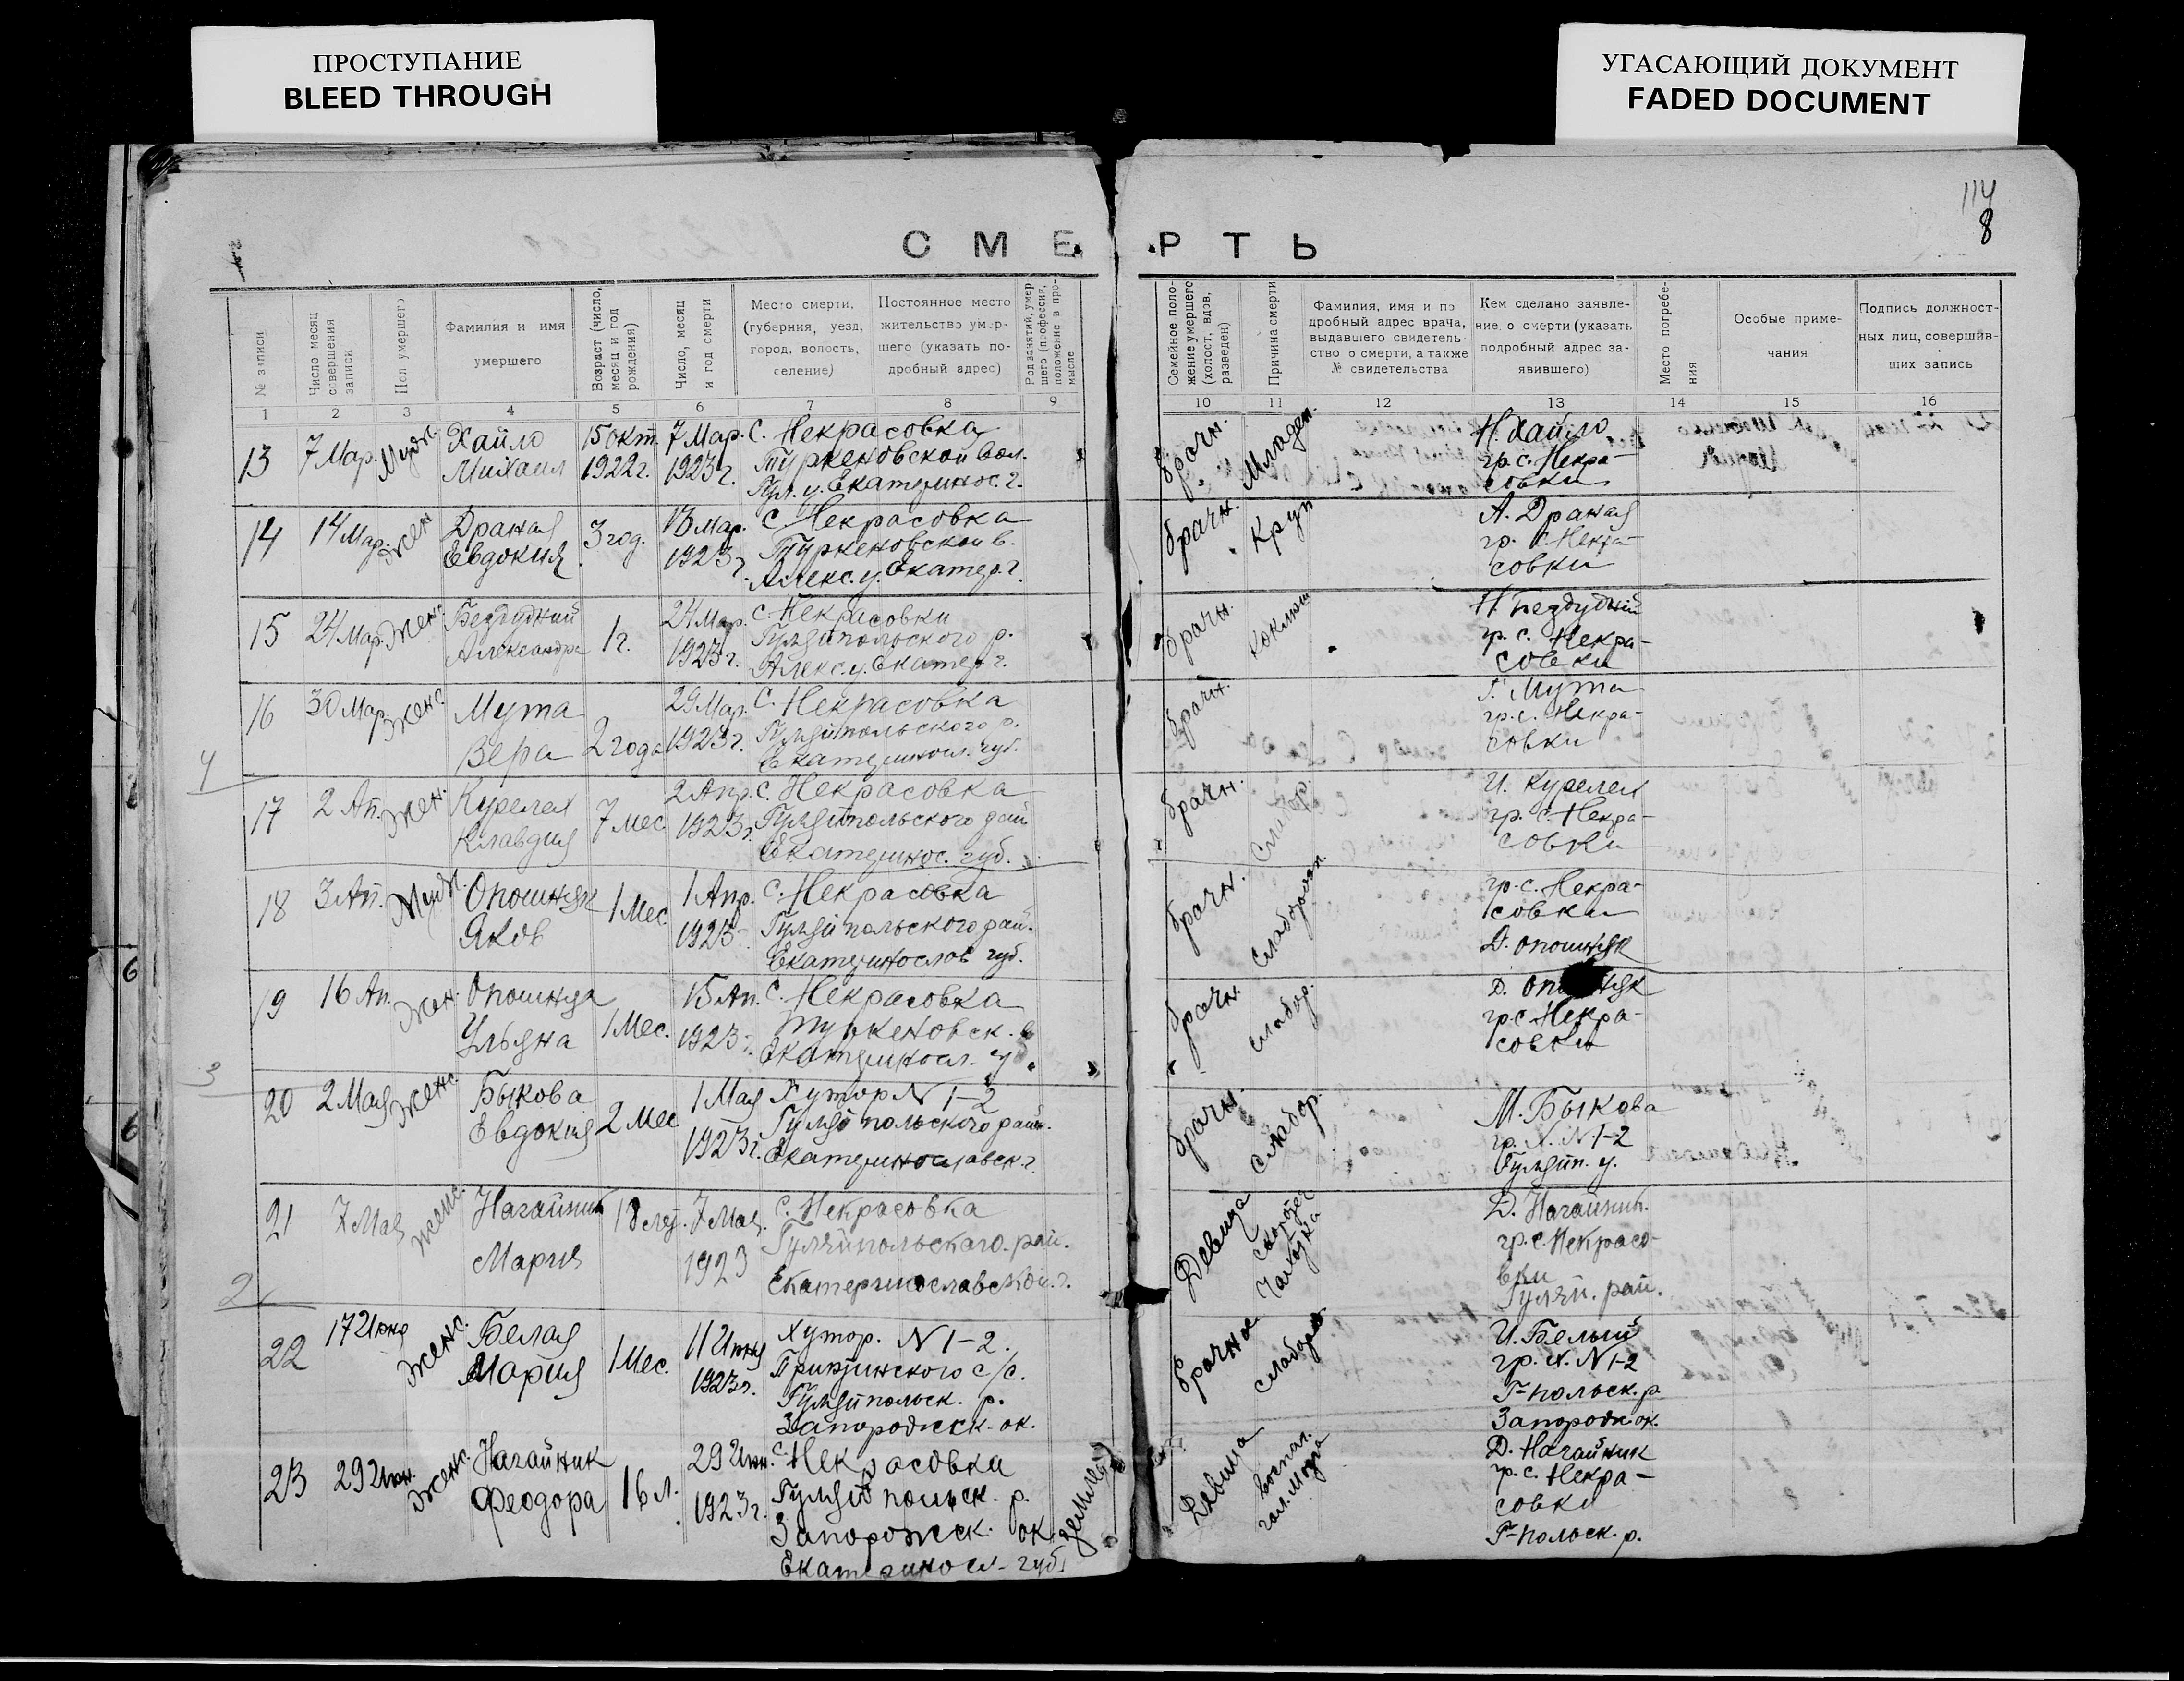 ПРОСТУПАНИЕ
BLEED THROUGH
УГАСАЮЩИЙ ДОКУМЕНТ
FADED DOCUMENT
114
8
СМЕРТЬ
№ записи
Число месяц совершения записи
Пол умершего
Фамилия и имя умершего
Возраст (число, месяц и год рождения)
Число, месяц и год смерти
Место смерти, (губерния, уезд, город, волость, селение)
Постоянное место жительство умершего (указать подробный адрес)
Род занятий, умершего (профессия, положение в промысле
Семейное положение умершего (холост, вдов, разведен)
Причина смерти
Фамилия, имя и подробный адрес врача, выдавшего свидетельство о смерти, а также № свидетельства
Кем сделано заявление о смерти (указать подробный адрес заявившего)
Место погребения
Особые примечания
Подпись должностных лиц, совершивших запись
1 2 3 4 5 6 7 8 9 10 11 12 13 14 15 16
13 7 Мар. Мужс. Хайло 15 окт. 7 Мар. с. Некрасовка
Михаил 1922г. 1923г. Туркеновской вол.
Гул. у. Екатеринос. г.
брачн. Младен. Н. Хайло
гр. с. Некра-
совки
14 14 Мар. Жен Драная 3 год. 13 Мар. с. Некрасовка
Евдокия 1923г. Туркеновской в.
Алекс. у. Екатер. г.
брачн. Круп А. Драная
гр. с. Некра-
совки
15 24 Мар. Жен. Бездудний 1 г. 24 Мар. с. Некрасовки
Александра 1923г. Гуляйпольского р.
Алекс. у. Екатер. г.
брачн. Коклюш Н. Бездудний
гр. с. Некра-
совки
16 30 Мар. Женс Мута 29 Мар. с. Некрасовка
Вера 2 года 1923г. Гуляйпольского р.
Екатериносл. губ.
брачн. Г. Мута
гр. с. Некра-
совки
4
17 2 Ап. Жен. Курелех 7 мес. 2 Апр. с. Некрасовка
Клавдия 1923г. Гуляйпольского рай
Екатеринос. губ.
брачн. Слабор. И. Курелех
гр. с. Некра-
совки
18 3 Ап. Мужс. Опошняк 1 Мес. 1 Апр. с. Некрасовка
Яков 1923 Гуляйпольского рай.
Екатеринослов губ.
брачн. гр. с. Некра-
совки
Д. Опошняк
19 16 Ап. Жен. Опошняк 15 Ап. с. Некрасовка
Ульяна 1 Мес. 1923г. Туркеновск. в
Екатериносл. г
брачн. слабор. Д. Опошняк
гр. с Некра-
совки
3
20 2 Мая Женс. Быкова 1 Мая Хутор N 1-2
Евдокия 2 Мес 1923г. Гуляйпольского рай.
Екатеринославск. г.
брачн. слабор. М. Быкова
гр. х. N. 1-2
Гуляйп. у.
21 7 Мая женс. Нагайник 18 лет. 7 Мая. с. Некрасовка
Мария 1923 Гуляйпольского. рай.
Екатеринославской. г.
Девица Д. Нагайник.
гр. с. Некрасо-
вки
Гуляй. рай.
2
22 17 Июня Женс. Белая 11 Июня Хутор. N 1-2.
Мария 1 Мес. 1923г.
Гуляйпольск. р.
Запорожск. ок.
брачное слаборо. И. Белый
гр. х. N 1-2
Г-польск. р
Запорож. ок.
23 29 Июн. Женс. Нагайник 29 Июн. с. Некрасовка
Феодора 16 л. 1923г. Гуляйпольск. р.
Запорожск. ок.
Екатериносл. губ.
Девица воспал. гол. мозга Д. Нагайник
гр. с. Некра-
совки
Г-польск. р.